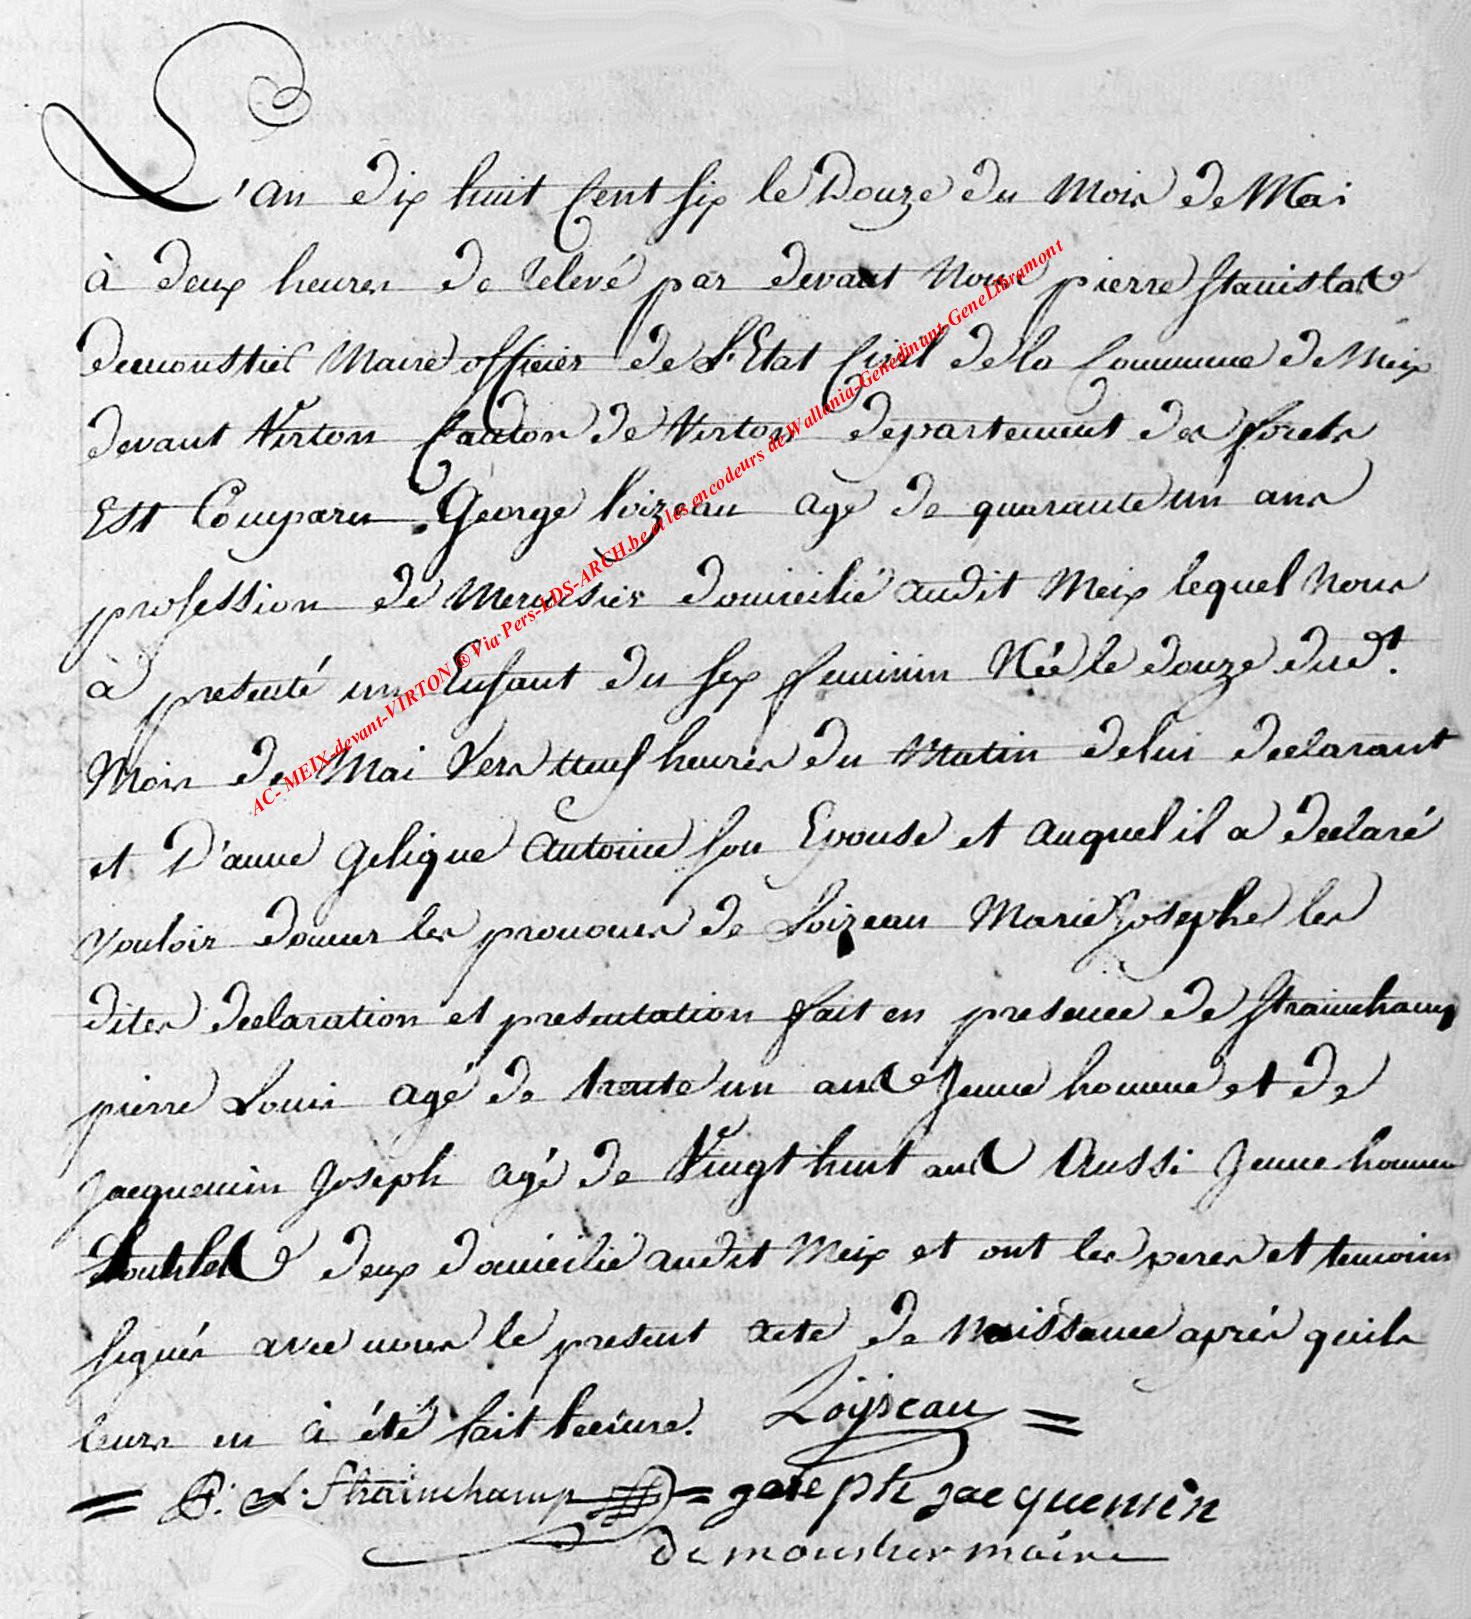 L'an dix huit Cent six le Douze du Mois de Mai
à deux heures de relevé par devant Nous pierre Stanislas
demoustier Maire officier de L'Etat Civil de la Commune de Meix
devant Virton Canton de Virton departement des forets
Est Comparu George loizeau agé de quarante un ans
profession de Menuisier domicilié audit Meix lequel Nous
à presenté un Enfant du sex feminin Née le douze dudt.
Mois de Mai Vers neuf heures du Matin de lui declarant
et D'anne gelique Antoine son Epouse et auquel il a declaré
vouloir donner les prenoms de Loizeau Marie Josephe les
dites declaration et presentation fait en presence de Strainchamp
pierre Louis agé de trente un ans Jeune homme et de
Jacquemin Joseph agé de Vingt huit ans Aussi Jeune homme
deux domicilié audit Meix et ont les peres et temoins
signés avec nous le present acte de Naissance aprés quils
leurs en à été fait lecture. Loijseau =
= P. L. Strainchamp = joseph jacquemin
demoustier maire
AC- MEIX-devant-VIRTON ® Via Pers-LDS-ARCH.be et les encodeurs de Wallonia-Genedinant-GeneLibramont